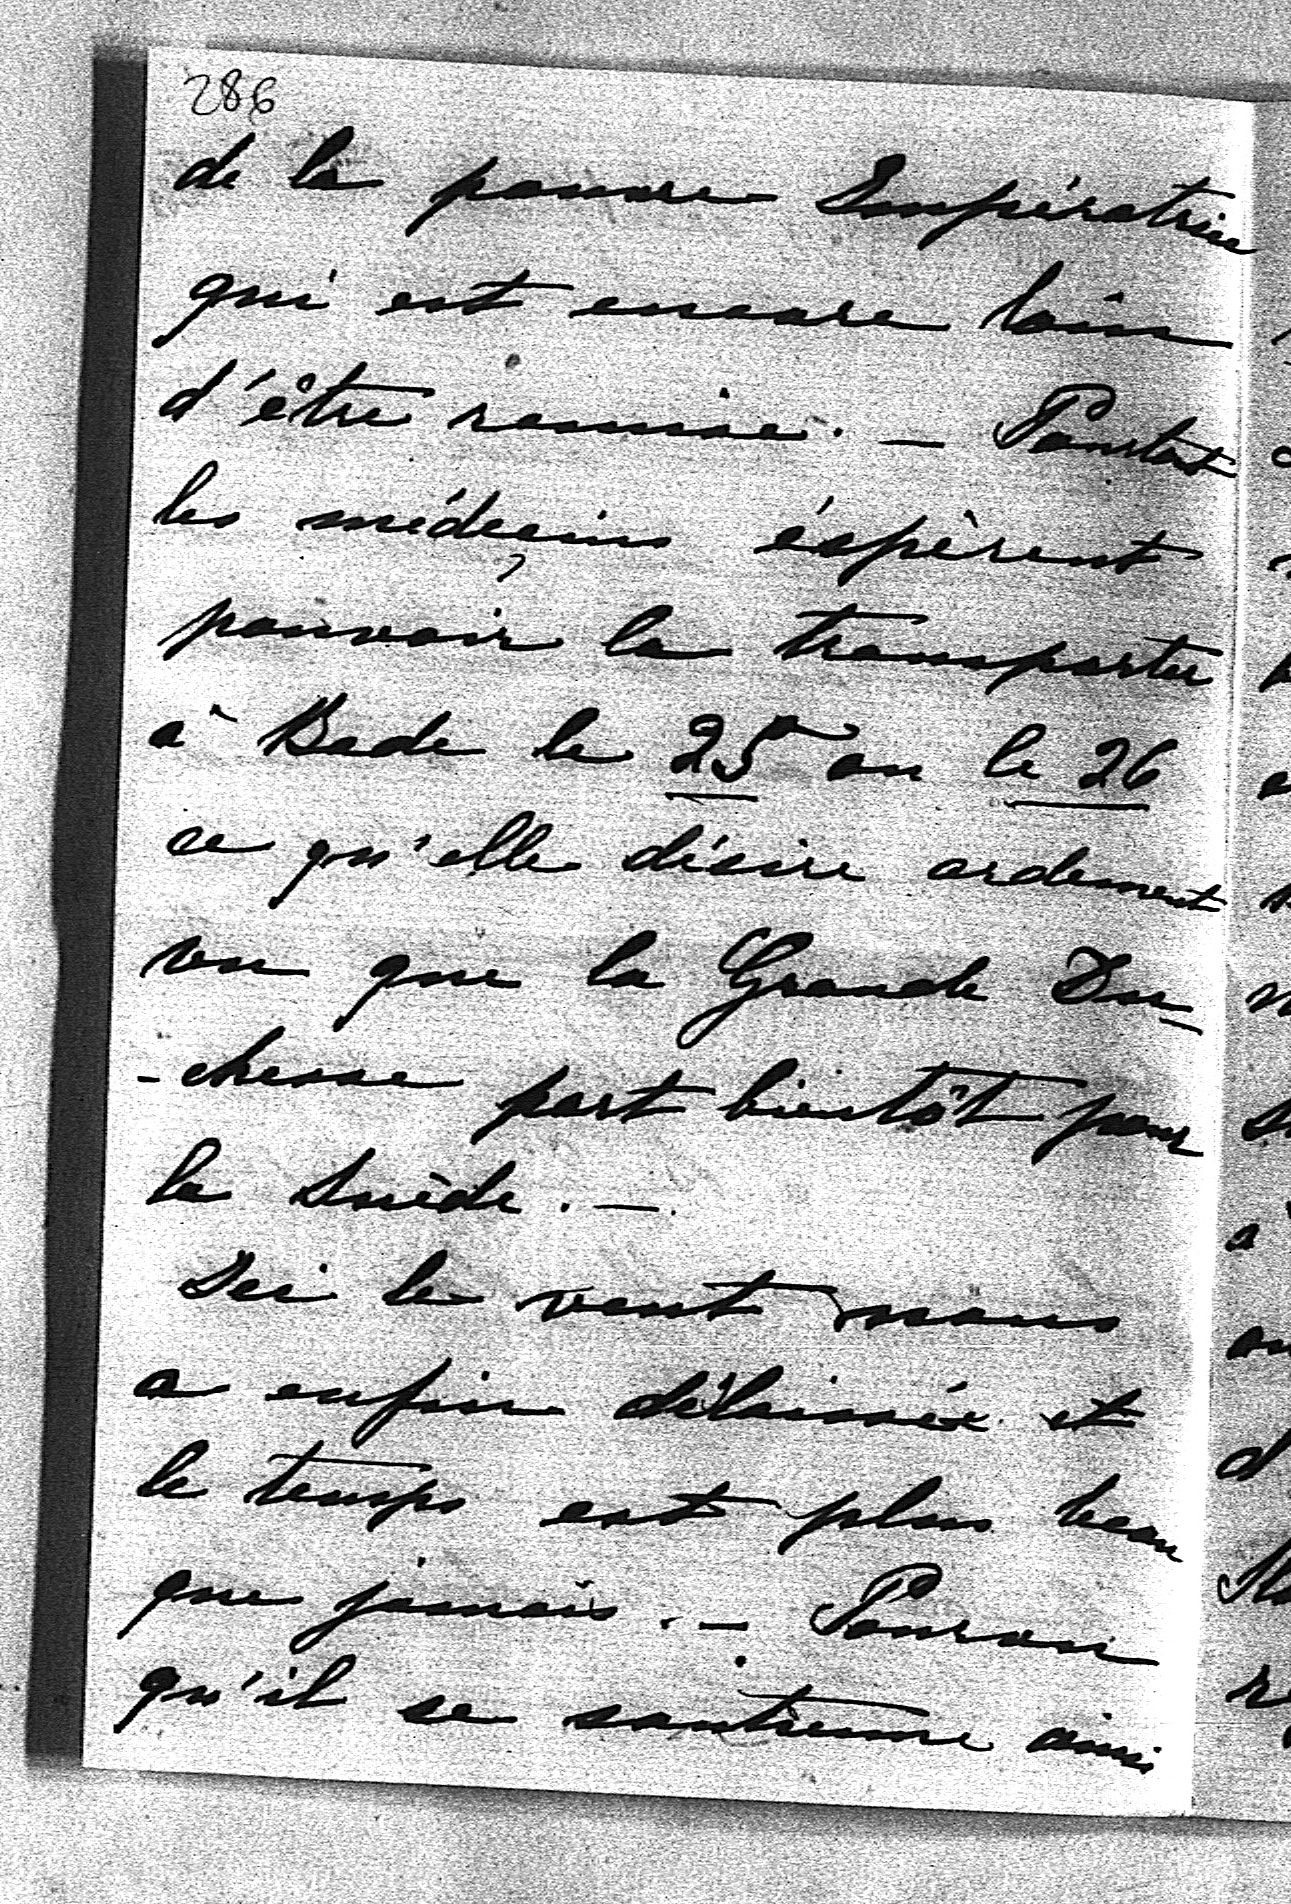 286
de la pauvre Impératrice
qui est encore loin
d'être remise. — Pourtant
les médecins éspèrent
pouvoir la transporter
à Bade le 25 ou le 26
ce qu'elle désire ardement
vu que la Grande Du-
-chesse part bientôt pour
la Suède. —.
Ici le vent nous
a enfin délaissée et
le temps est plus beau
que jamais. — Pourvu
qu'il se soutienne ainsi